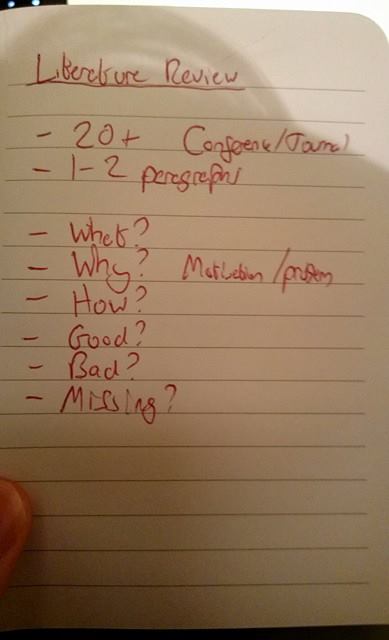 Literature Review
- 20+ Conference/Journal
- 1-2 paragraphs
- What?
- Why? Motivation/problem
- How?
- Good?
- Bad?
- Missing?